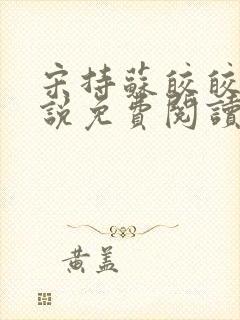 宋持蘇皎皎
說免費閱讀
黃盖